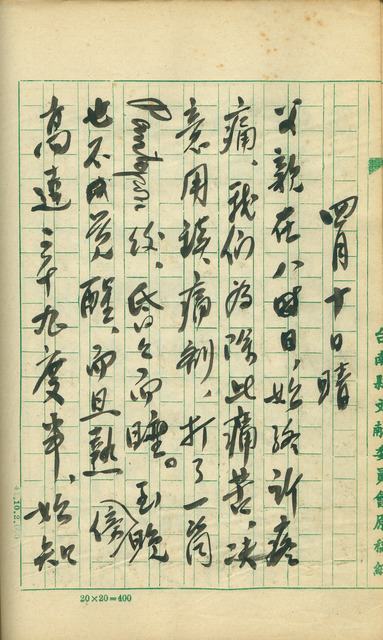 四月十日晴
父親在八時日，始終訴疼
痛，我們為除此痛苦，决
意用鎮痛剤，打了一筒
Pantopon 後，昏々而睡。至晚
也不成覚醒，而且熱(傍)
高達三十九度半，始知
台南縣文献委員會原稿紙
20×20=400